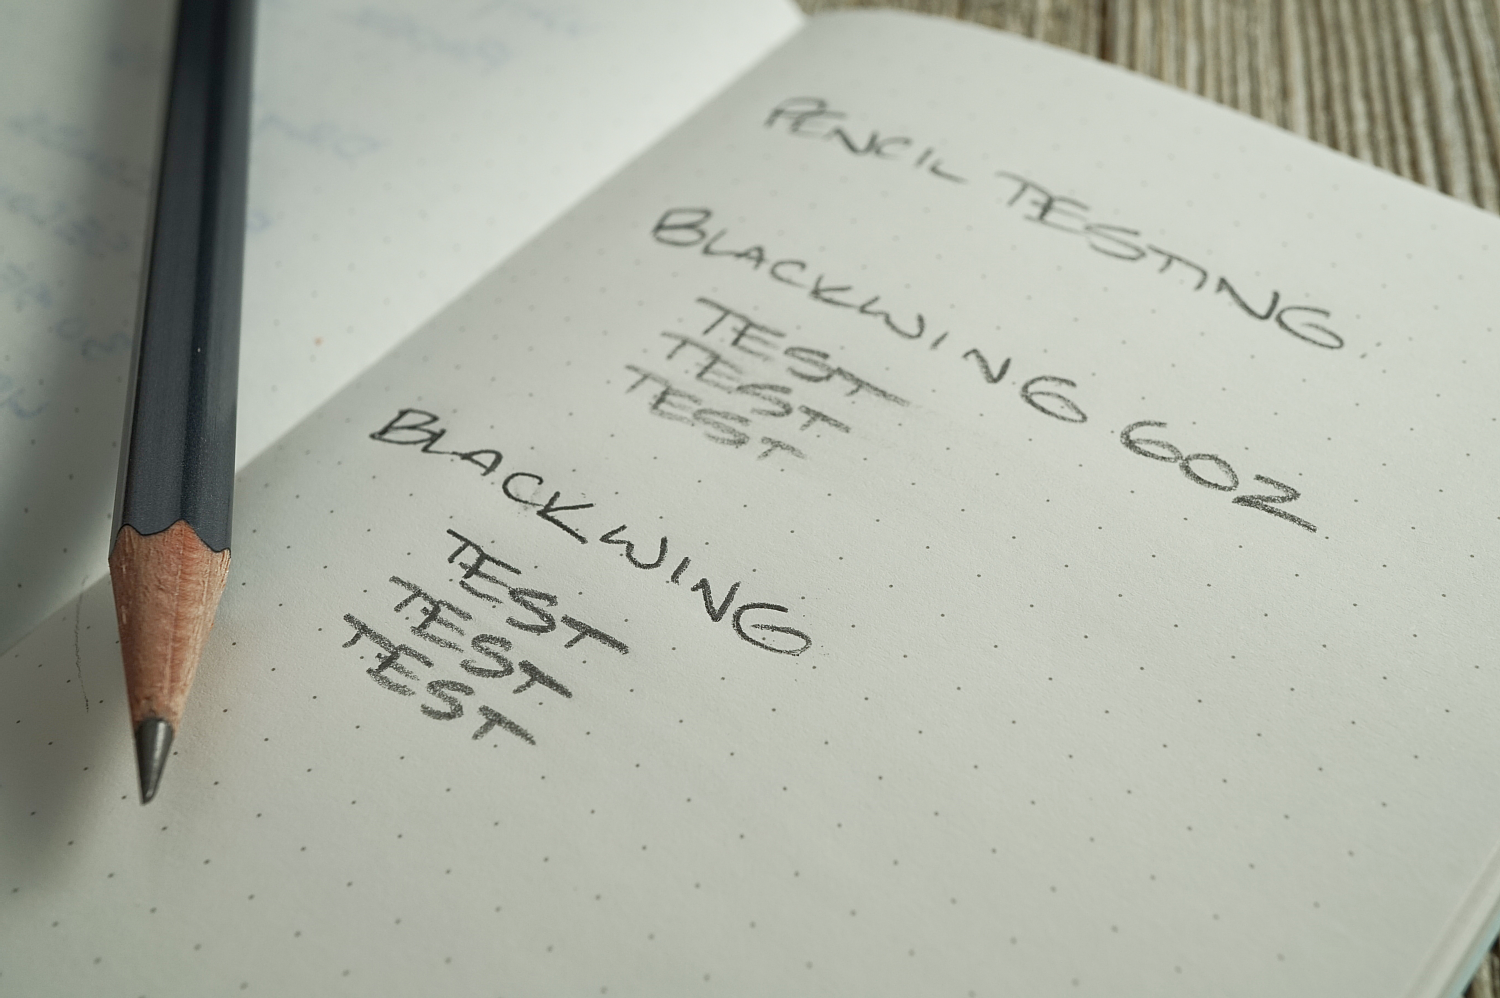 PENCIL TESTING
BLACKWING 602
TEST
TEST
TEST
BLACKWING
TEST
TEST
TEST